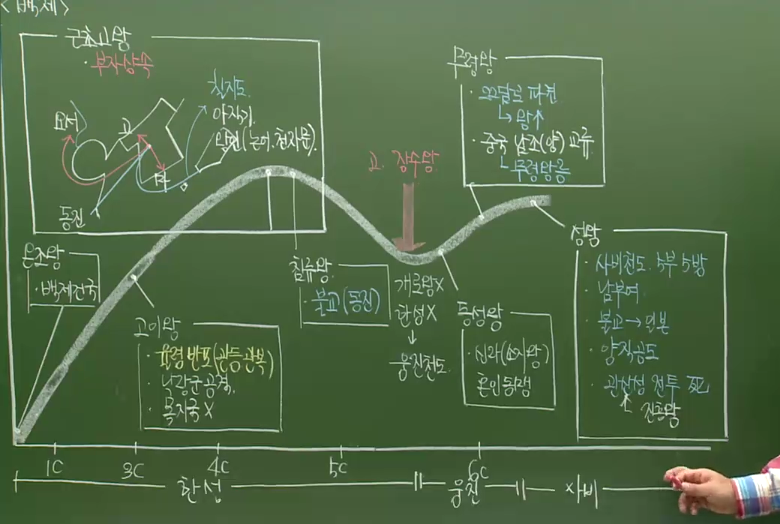 <백제>
근초고왕
· 부자상속
칠지도
아직기
왕인(논어. 천자문)
요서
고
마
동진
고. 장수왕
무령왕
· 22담로 파견
↳ 왕↑
· 중국 남조(양) 교류
↳ 무령왕릉
온조왕
· 백제건국
고이왕
· 율령 반포(관등.관복)
· 낙랑군 공격
· 목지국 X
침류왕
· 불교(동진)
개로왕X
한성 X
↓
웅진천도
동성왕
· 신라(소지왕)
혼인동맹
성왕
· 사비천도. 5부 5방
· 남부여
· 불교→일본
· 양직공도
· 관산성 전투 死
진흥왕
1C 3C 4C 5C 6C
한성 웅진 사비